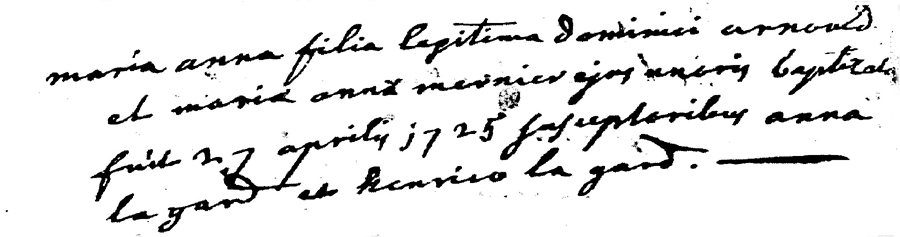 maria anna filia legitima dominici arnould
et maria anna mernier ejus uxoris baptizata
fuit 27 aprilis 1725 susceptoribus anna
la gard et henrico la gard.